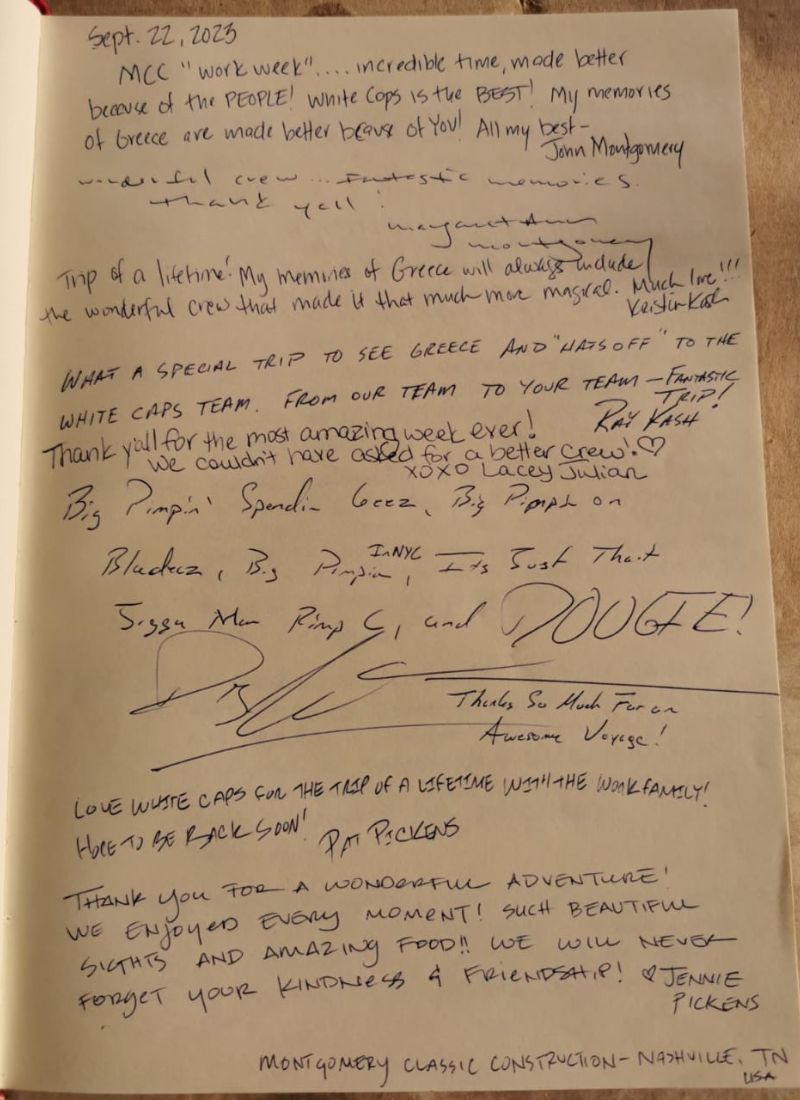 Sept. 22, 2023
MCC "work week".... incredible time, made better
because of the PEOPLE! White Caps is the BEST! My memories
of Greece are made better beause of YOU! All my best-
John Montgomery
wonderful crew... Fantastic memories.
Thank yall!
Margaret Ann
Montgomery
Trip of a lifetime! My memories of Greece will always include
the wonderful crew that made it that much more magical. Much love!!!
Kristin Kash
WHAT A SPECIAL TRIP TO SEE GREECE AND "HATS OFF" TO THE
WHITE CAPS TEAM. FROM OUR TEAM TO YOUR TEAM - FANTASTIC
TRIP!
RAY KASH
Thank y'all for the most amazing week ever!
We couldn't have asked for a better crew! ♡
XOXO Lacey Julian
Big Pimpin' Spendin Geez, Big Pimpin on
Bladezz, Big Pimpin In NYC, Its Just That
Jigga Man Pimp C, and DOUGIE!
Thanks So Much For an
Awesome Voyage!
LOVE WHITE CAPS FOR THE TRIP OF A LIFETIME WITH THE WORK FAMILY!
HOPE TO BE BACK SOON! PAT PICKENS
THANK YOU FOR A WONDERFUL ADVENTURE!
WE ENJOYED EVERY MOMENT! SUCH BEAUTIFUL
SIGHTS AND AMAZING FOOD!! WE WILL NEVER
FORGET YOUR KINDNESS & FRIENDSHIP! ♡ JENNIE
PICKENS
MONTGOMERY CLASSIC CONSTRUCTION - NASHVILLE, TN
USA